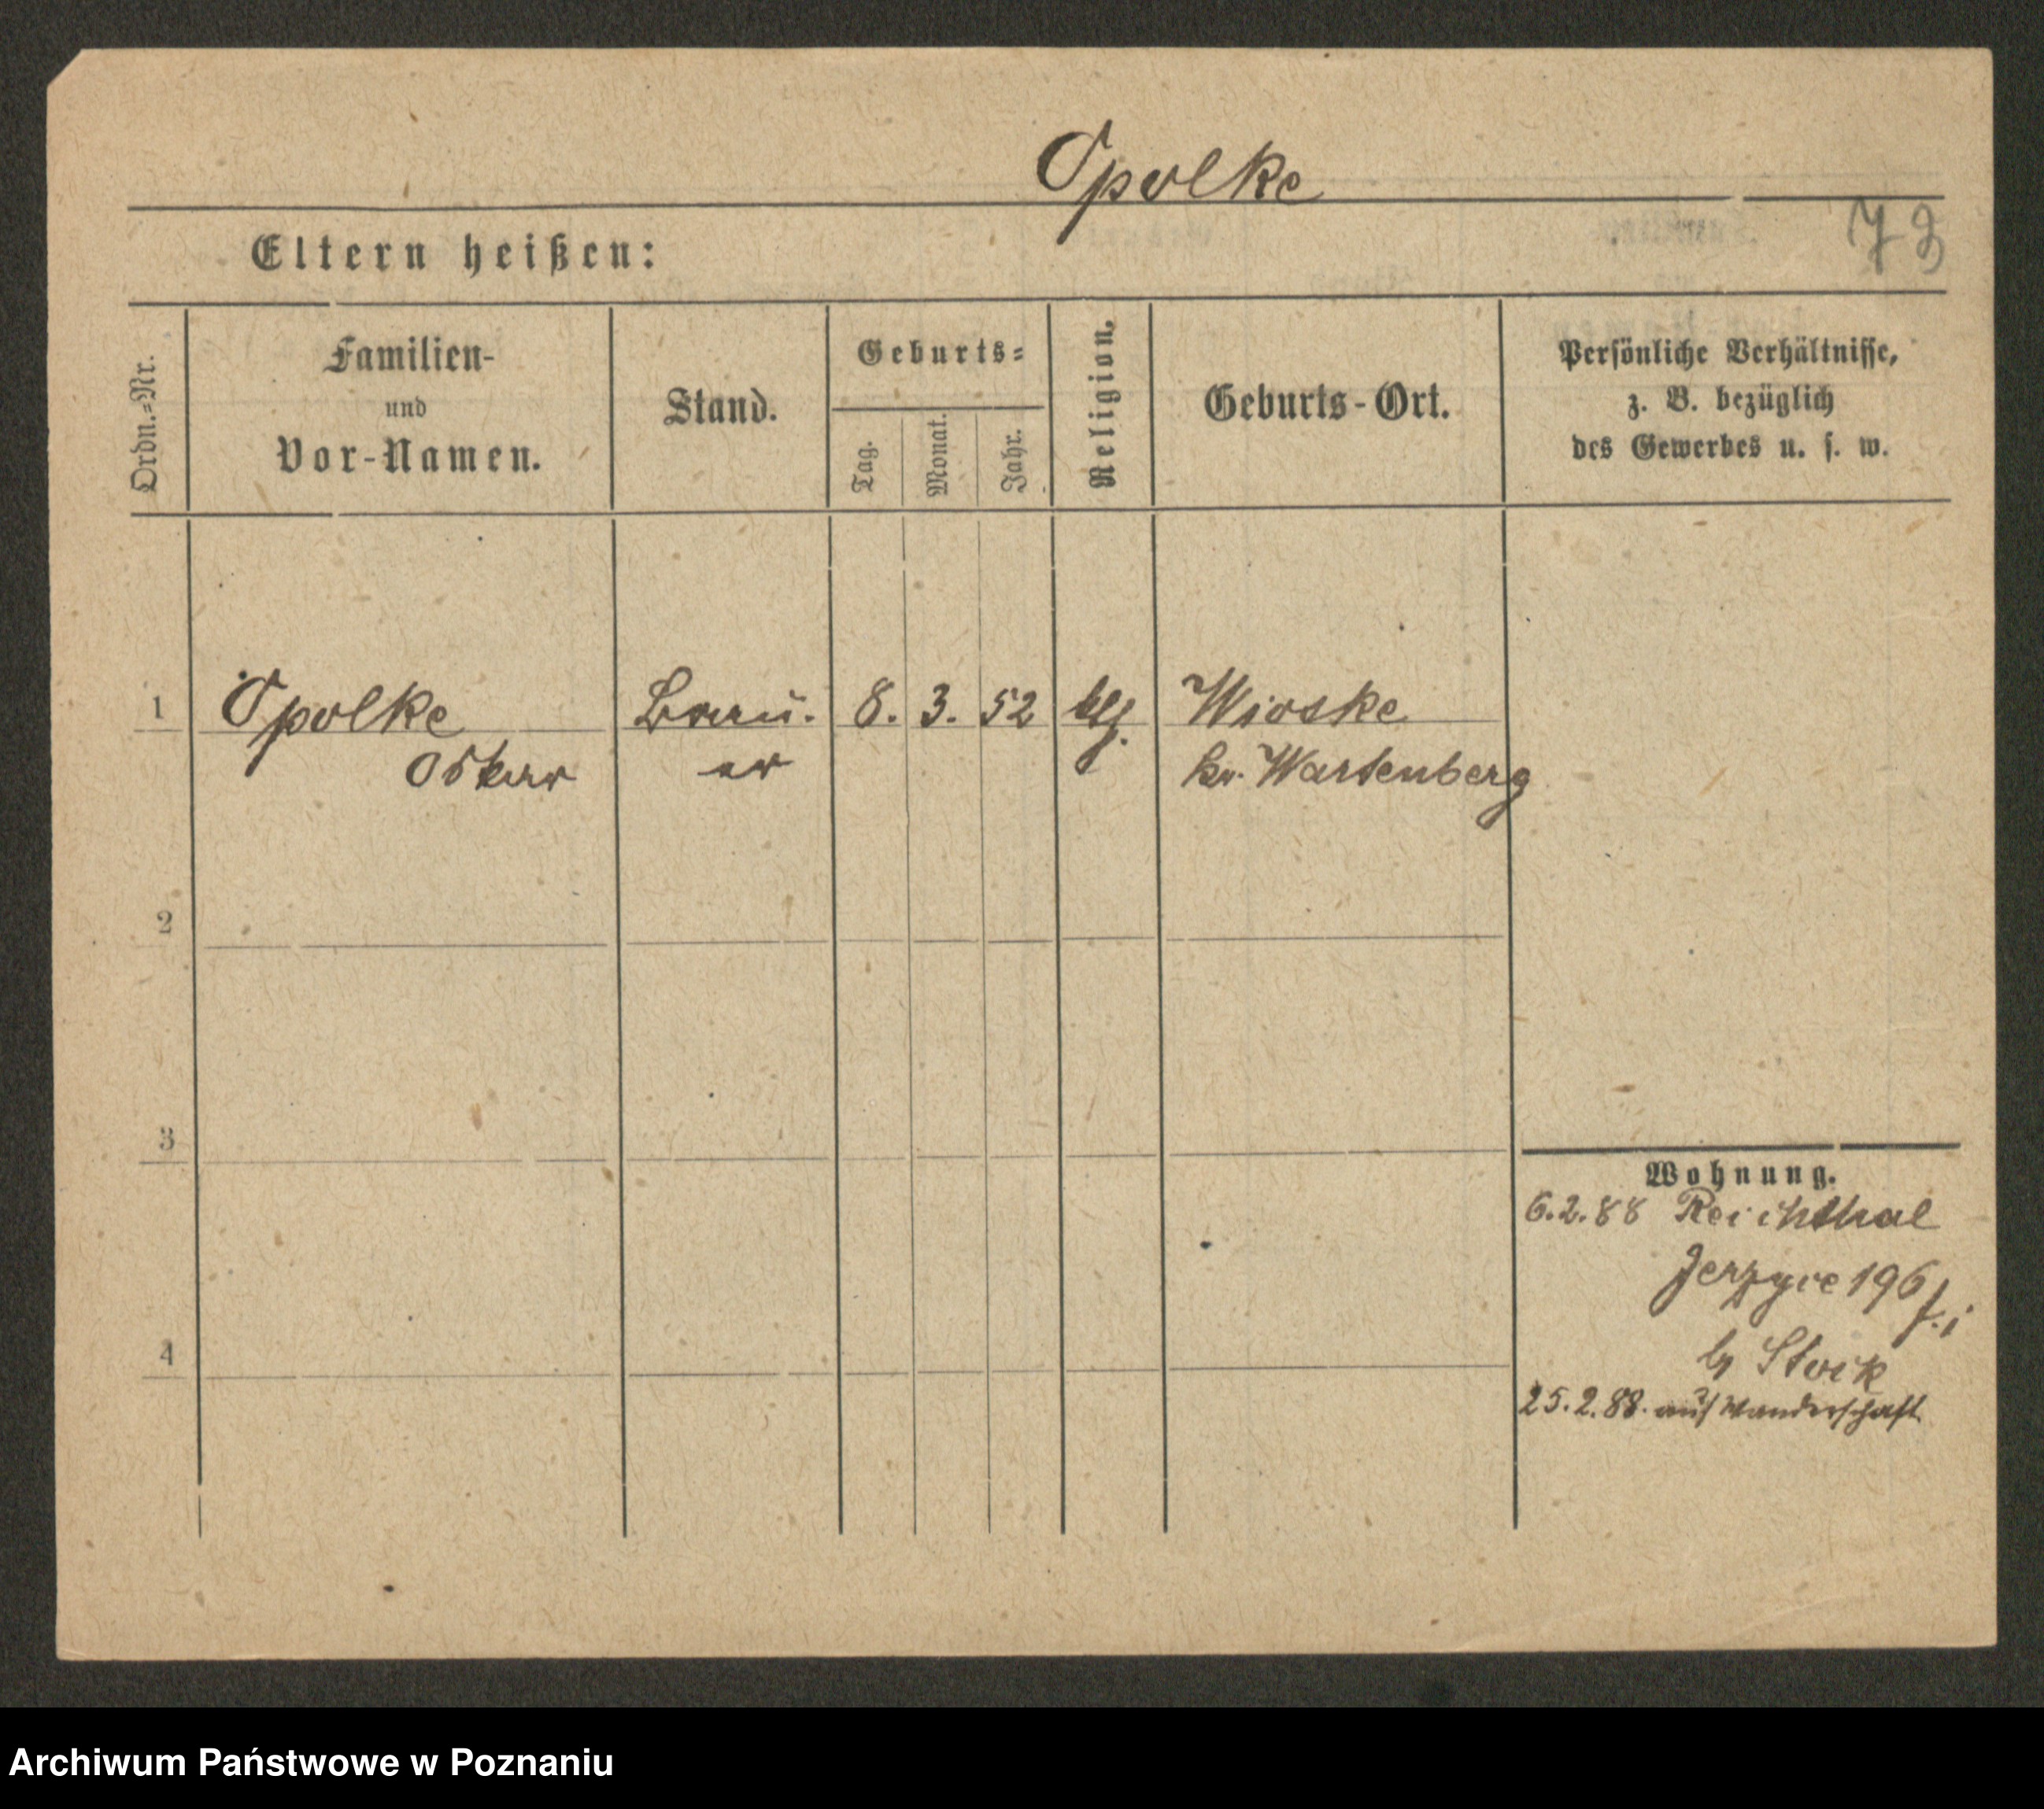 Opolke
73
Eltern heißen:
Ordn.-Nr.
Familien-
und
Vor-Namen.
Stand.
Geburts-
Tag.
Monat.
Jahr.
Religion.
Geburts-Ort.
Persönliche Verhältnisse,
z. B. bezüglich
des Gewerbes u. s. w.
1 Opolke Brau. 8. 3. 52 Wioske
Oskar er Kr. Wartenberg
2
3
4
Wohnung.
6.2.88 Reichthal
Jerzyce 196
Stock
25.2.88. auf Wanderschaft
Archiwum Państwowe w Poznaniu